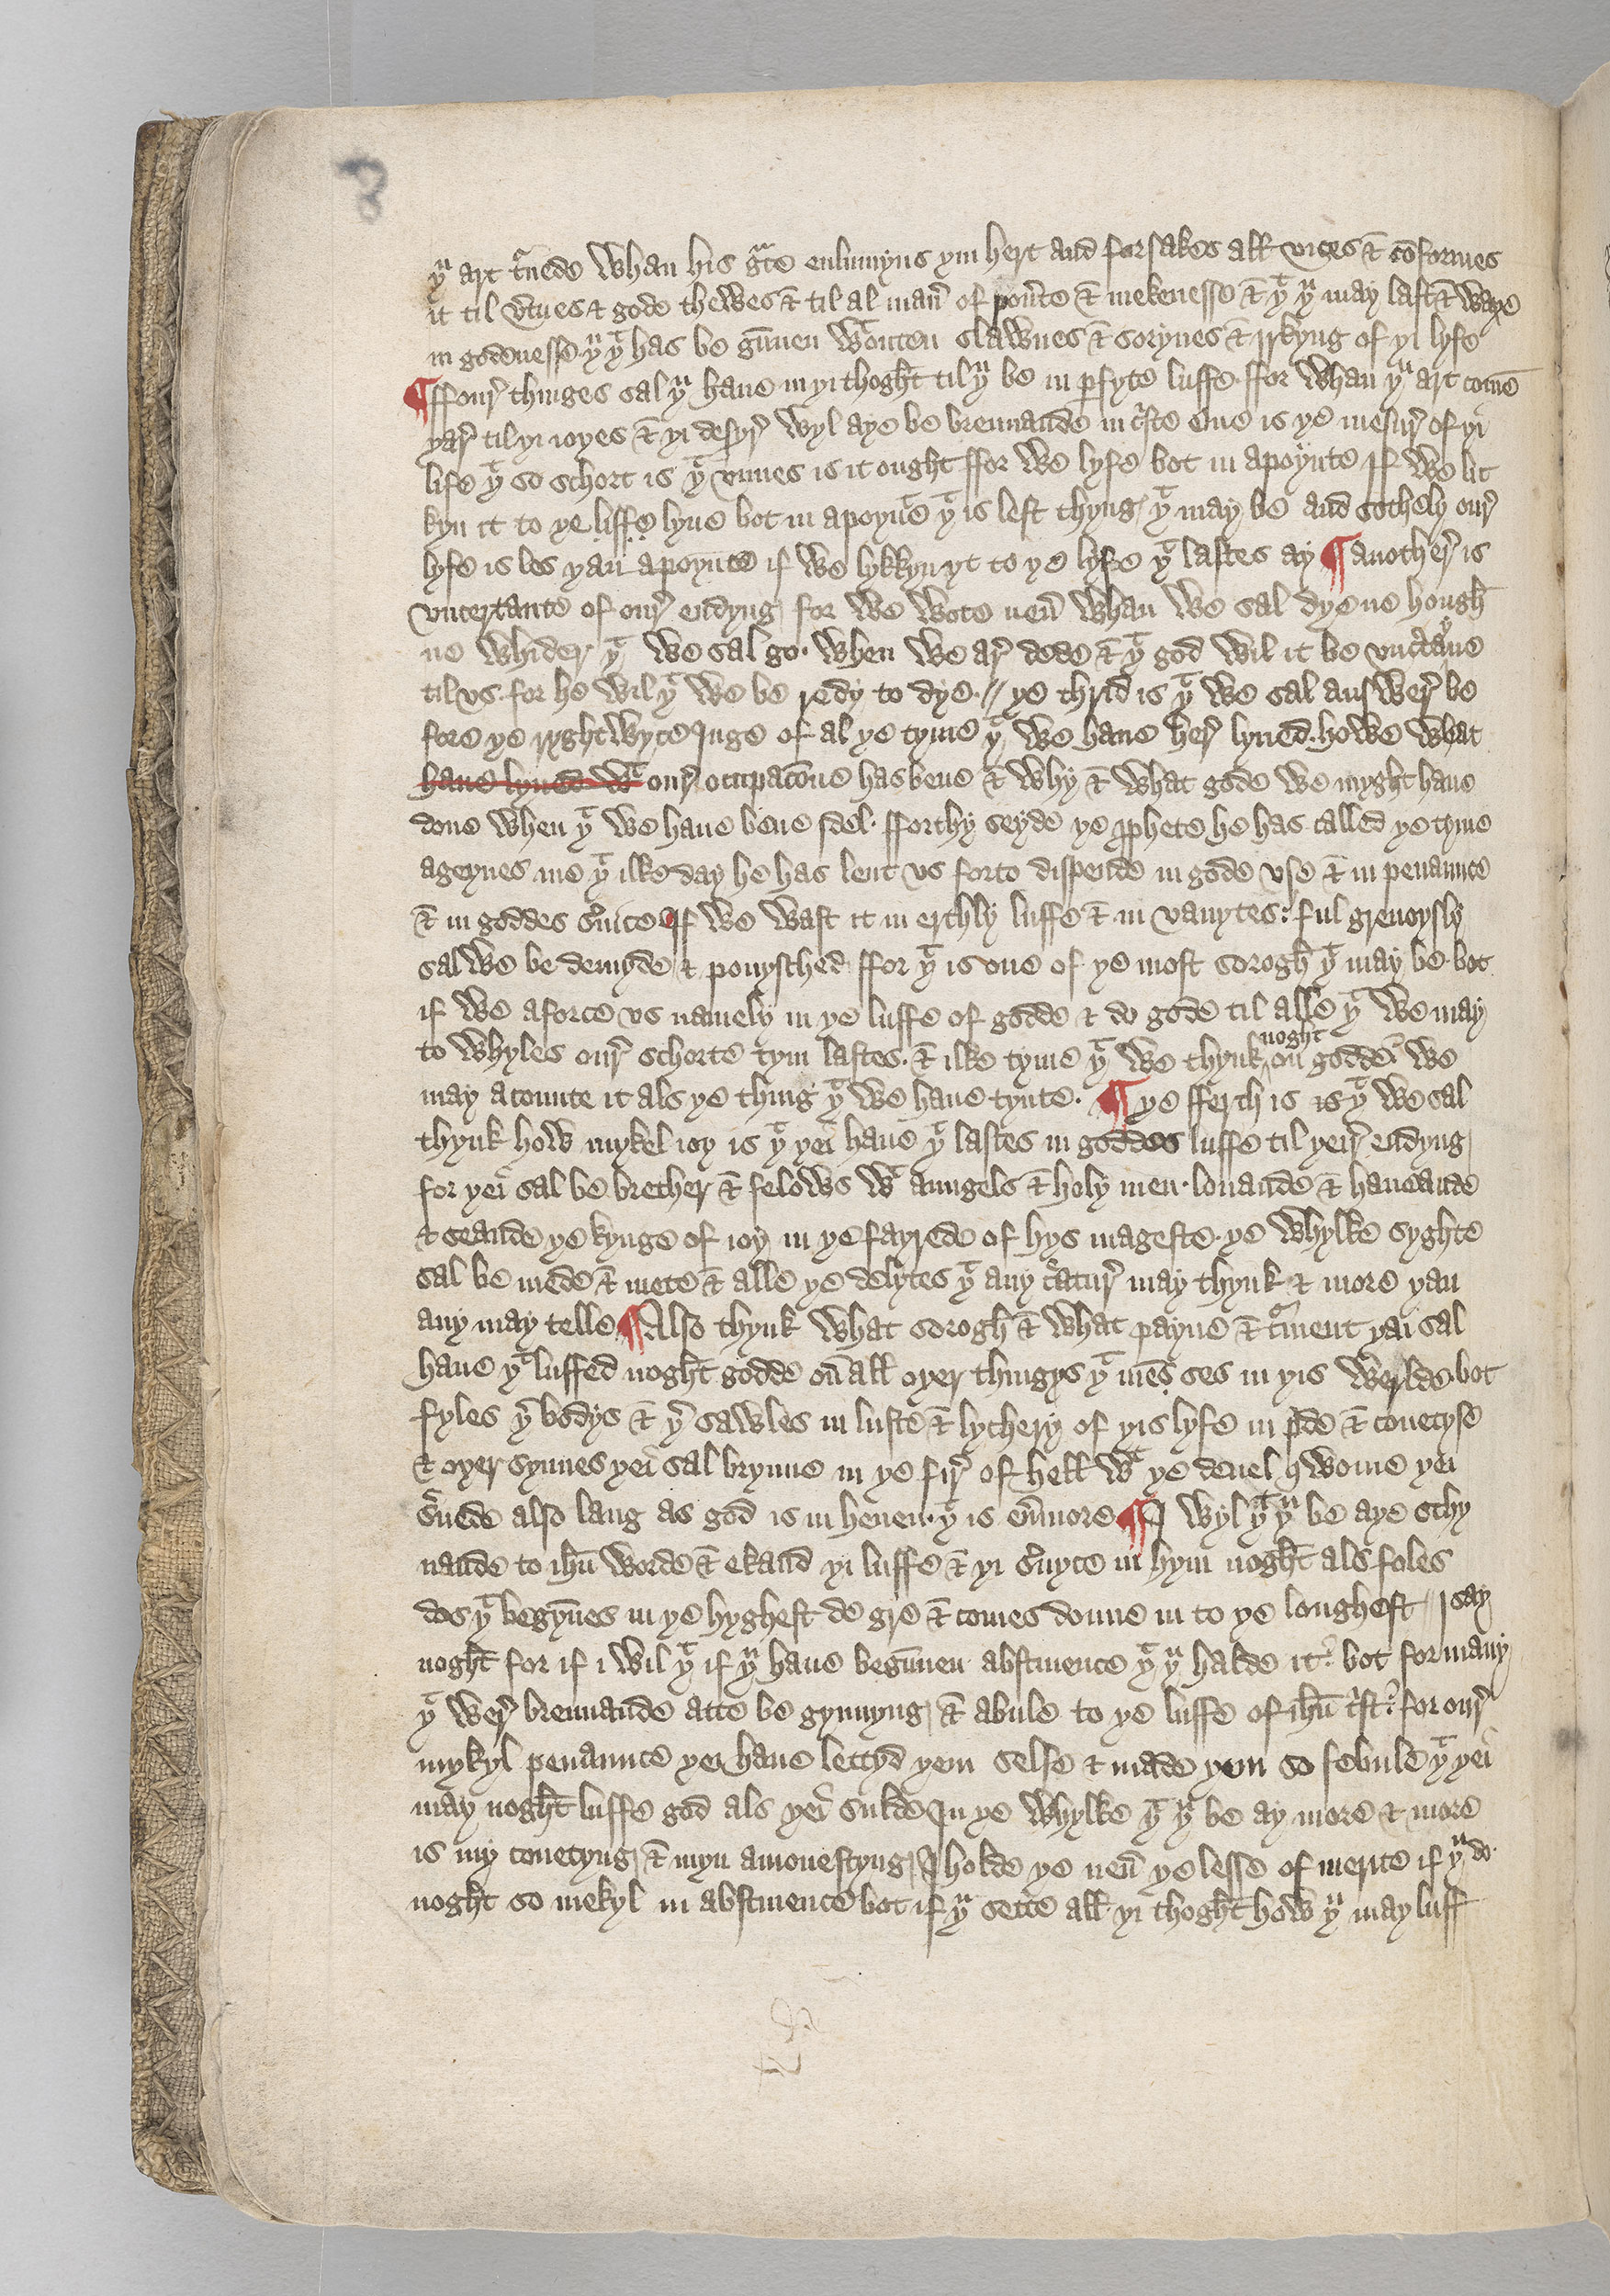 yu art tͥnede whan his gͣce enlumyns yin hert and forsakes all vices & cōformes
it til vͥtues & gode thewes & til al manͥ of ponͥte & mekenesse & yt yu may last & waxe
in godenesse yu yt has be gūnen wͭouten slawnes & sorynes & irkyng of yi lyfe
¶ ffourͥ thinges sal yu haue in yi thoght til yu be in pͥfyte luffe· ffor whan yu art comē
yarͥ til yi ioyes & yi desyrͥ wyl aye be brennande in cͥste Ane is ye mesurͥ of yi
life yt so schort is yt vnnes is it ought ffor we lyfe bot in apoynte If we lit
kyn it to ye liffe lyue bot in apoynte yt is lest thyng yt may be and sothely ourͥ
lyfe is les yan apoynte if we lykkyn yt to ye lyfe yt lastes ay ¶ anotherͥ is
vncertante of ourͥ endyng for we wote neuͥ whan we sal dye ne hough
ne whider yt we sal go· when we arͥ dede & yt god wil it be vncͥtayne
til vs· for he wil yt we be redy to dye· // ye thrid is yt we sal answerͥ be
fore ye ryghtwyce Iuge of al ye tyme yt we haue herͥ lyued· howe what
haue lyued wͭ ourͥ ocupacōne has bene & why & what gode we myght haue
done when yt we haue bene idel· fforthy seyde ye ꝓphete he has called ye tyme
ageynes me yt ilke day he has lent vs forto dispende in gode vse & in penannce
& in goddes sͥuice If we wast it in erthly luffe & in vanytes: ful greuoysly
sal we be demyde & ponysched ffor yt is one of ye most sorogh yt may be· bot
if we aforce vs namely in ye luffe of godde & do gode til alle yt we may
to whyles ourͥ schorte tym lastes· & ilke tyme yt we thynk noght on godde we
may acounte it als ye thing yt we haue tynte· ¶ ye fferth is is yt we sal
thynk how mykel ioy is yt yei haue yt lastes in goddes luffe til yeirͥ endyng
for yei sal be brether & felows wͭ anngels & holy men· louande & haueande
& seande ye kynge of ioy in ye fayrede of hys mageste· ye whylke syghte
sal be mede & mete & alle ye delytes yt any cͤaturͥ may thynk & more yan
any may telle ¶ Also thynk what sorogh & what payne & tͦment yai sal
haue yt luffed noght godde ouͥ all oyer thingys yt mē ses in yis werlde· bot
fyles yͥ bodys & yͥ sawles in luste & lychery of yis lyfe in pͥde & couetyse
& oyer synnes yei sal brynne in ye firͥ of hell wͭ ye deuel qwome yei
sͥuede also lang as god is in heuen· yt is euͥmore ¶ I wyl yt yu be aye schy
nande to ihū worde & ekand yi luffe & yi sͥuyce in hym noght als foles
dos yt begyn̄es in ye hyghest de gre & comes doune in to ye loughest // I say
noght for if i wil yt if yu haue begūnen abstinence yt yu halde it: bot for many
yt werͥ brennande atte be gynnyng & abule to ye luffe of ihū cͥst: for ourͥ
mykyl penannce yei haue lettyd yem selfe & made yem so febule yt yei
may noght luffe god als yei sulde In ye whylke yt yu be ay more & more
is my couetyng & myn amonestyng I holde ye neuͥ ye lesse of merite if yu do·
noght so mekyl in abstinence bot if yu sette all yi thoght how yu may luff